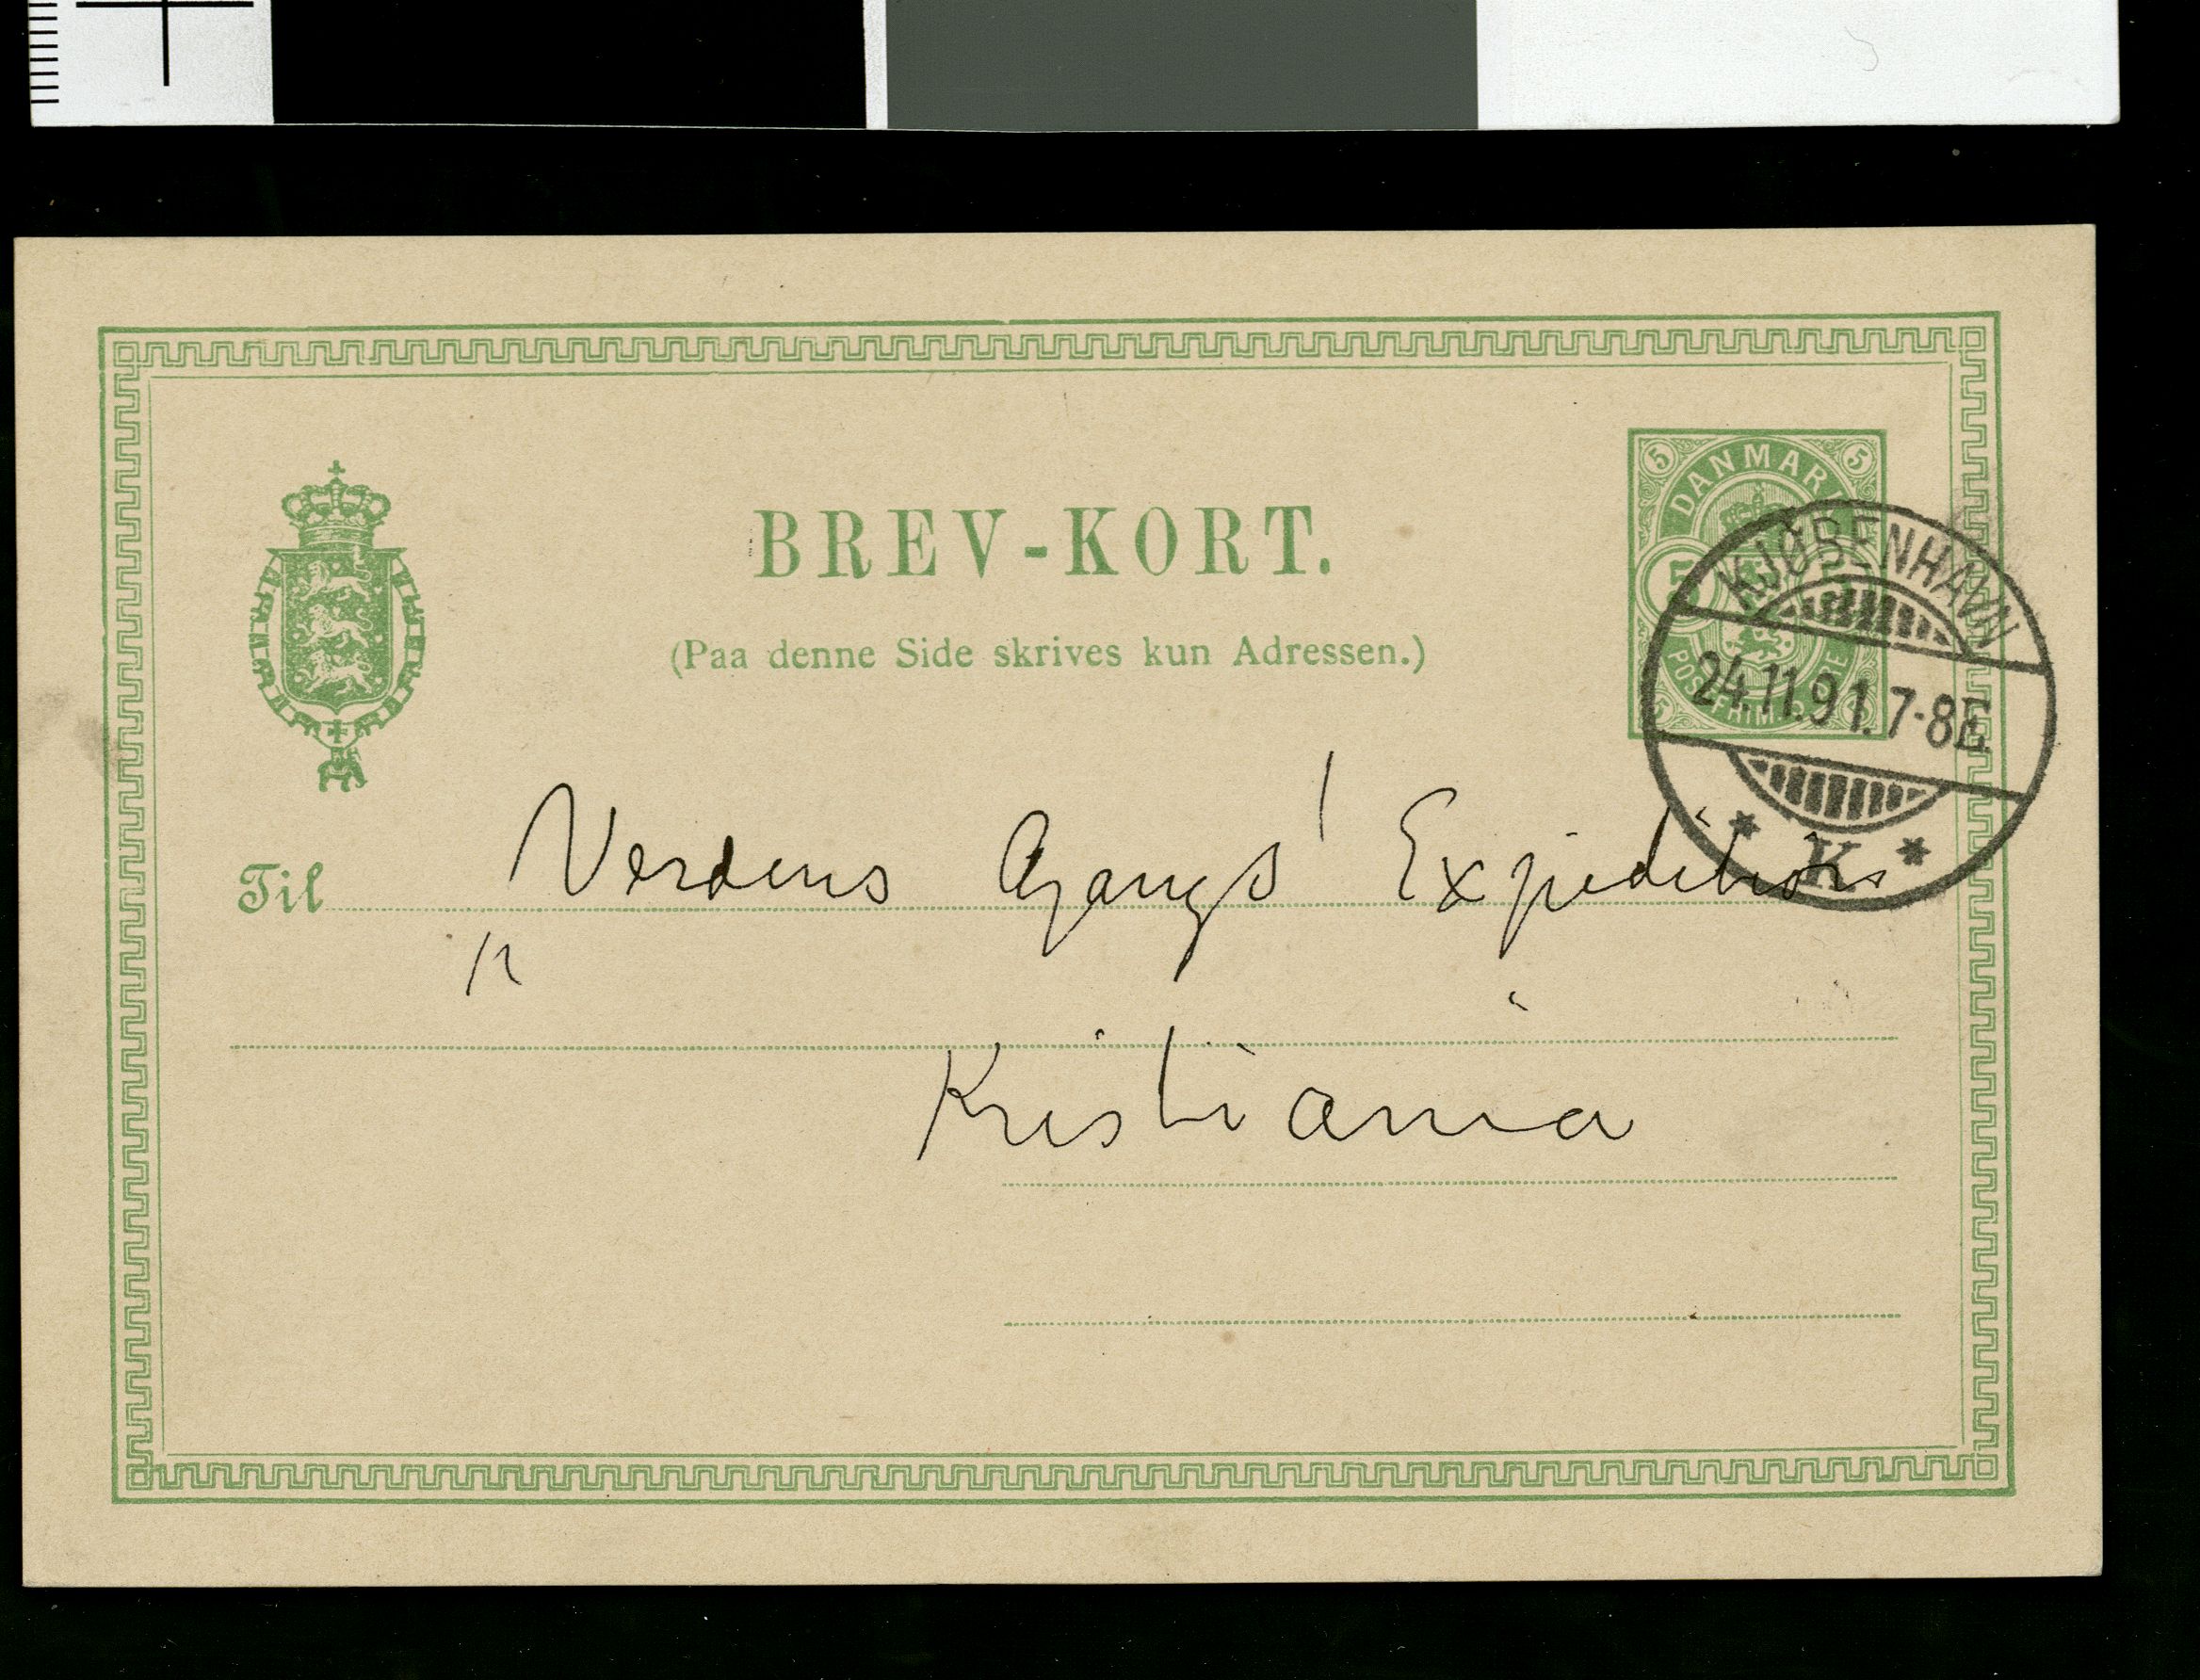 BREV-KORT.
(Paa denne Side skrives kun Adressen.)
5 5
DANMARK
5
POSTFRIM.
KJØBENHAVN
24.11.91. 7-8E.
* K *
Til Verdens Gangs' Expedition
"
Kristiania